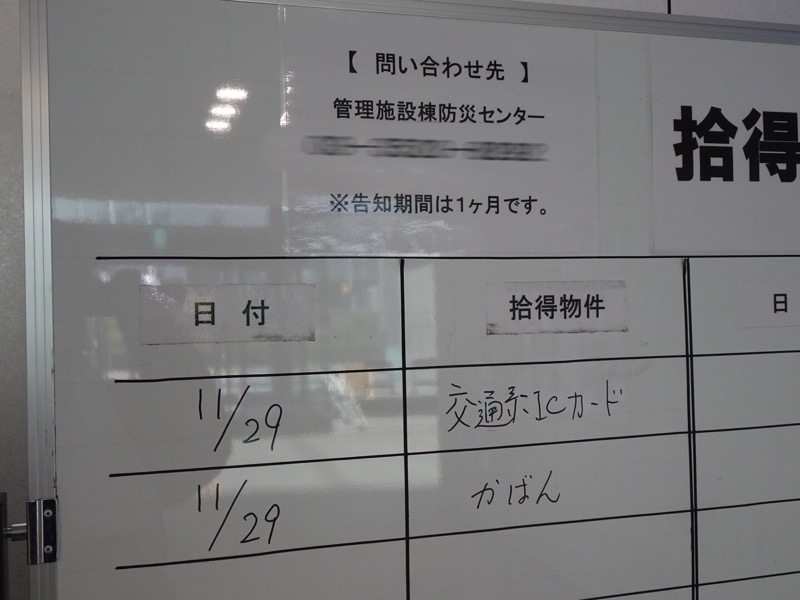 【 問い合わせ先 】
管理施設棟防災センター
※告知期間は1ヶ月です。
拾得
日 付
拾得物件
日
11/29
交通系ICカード
11/29
かばん